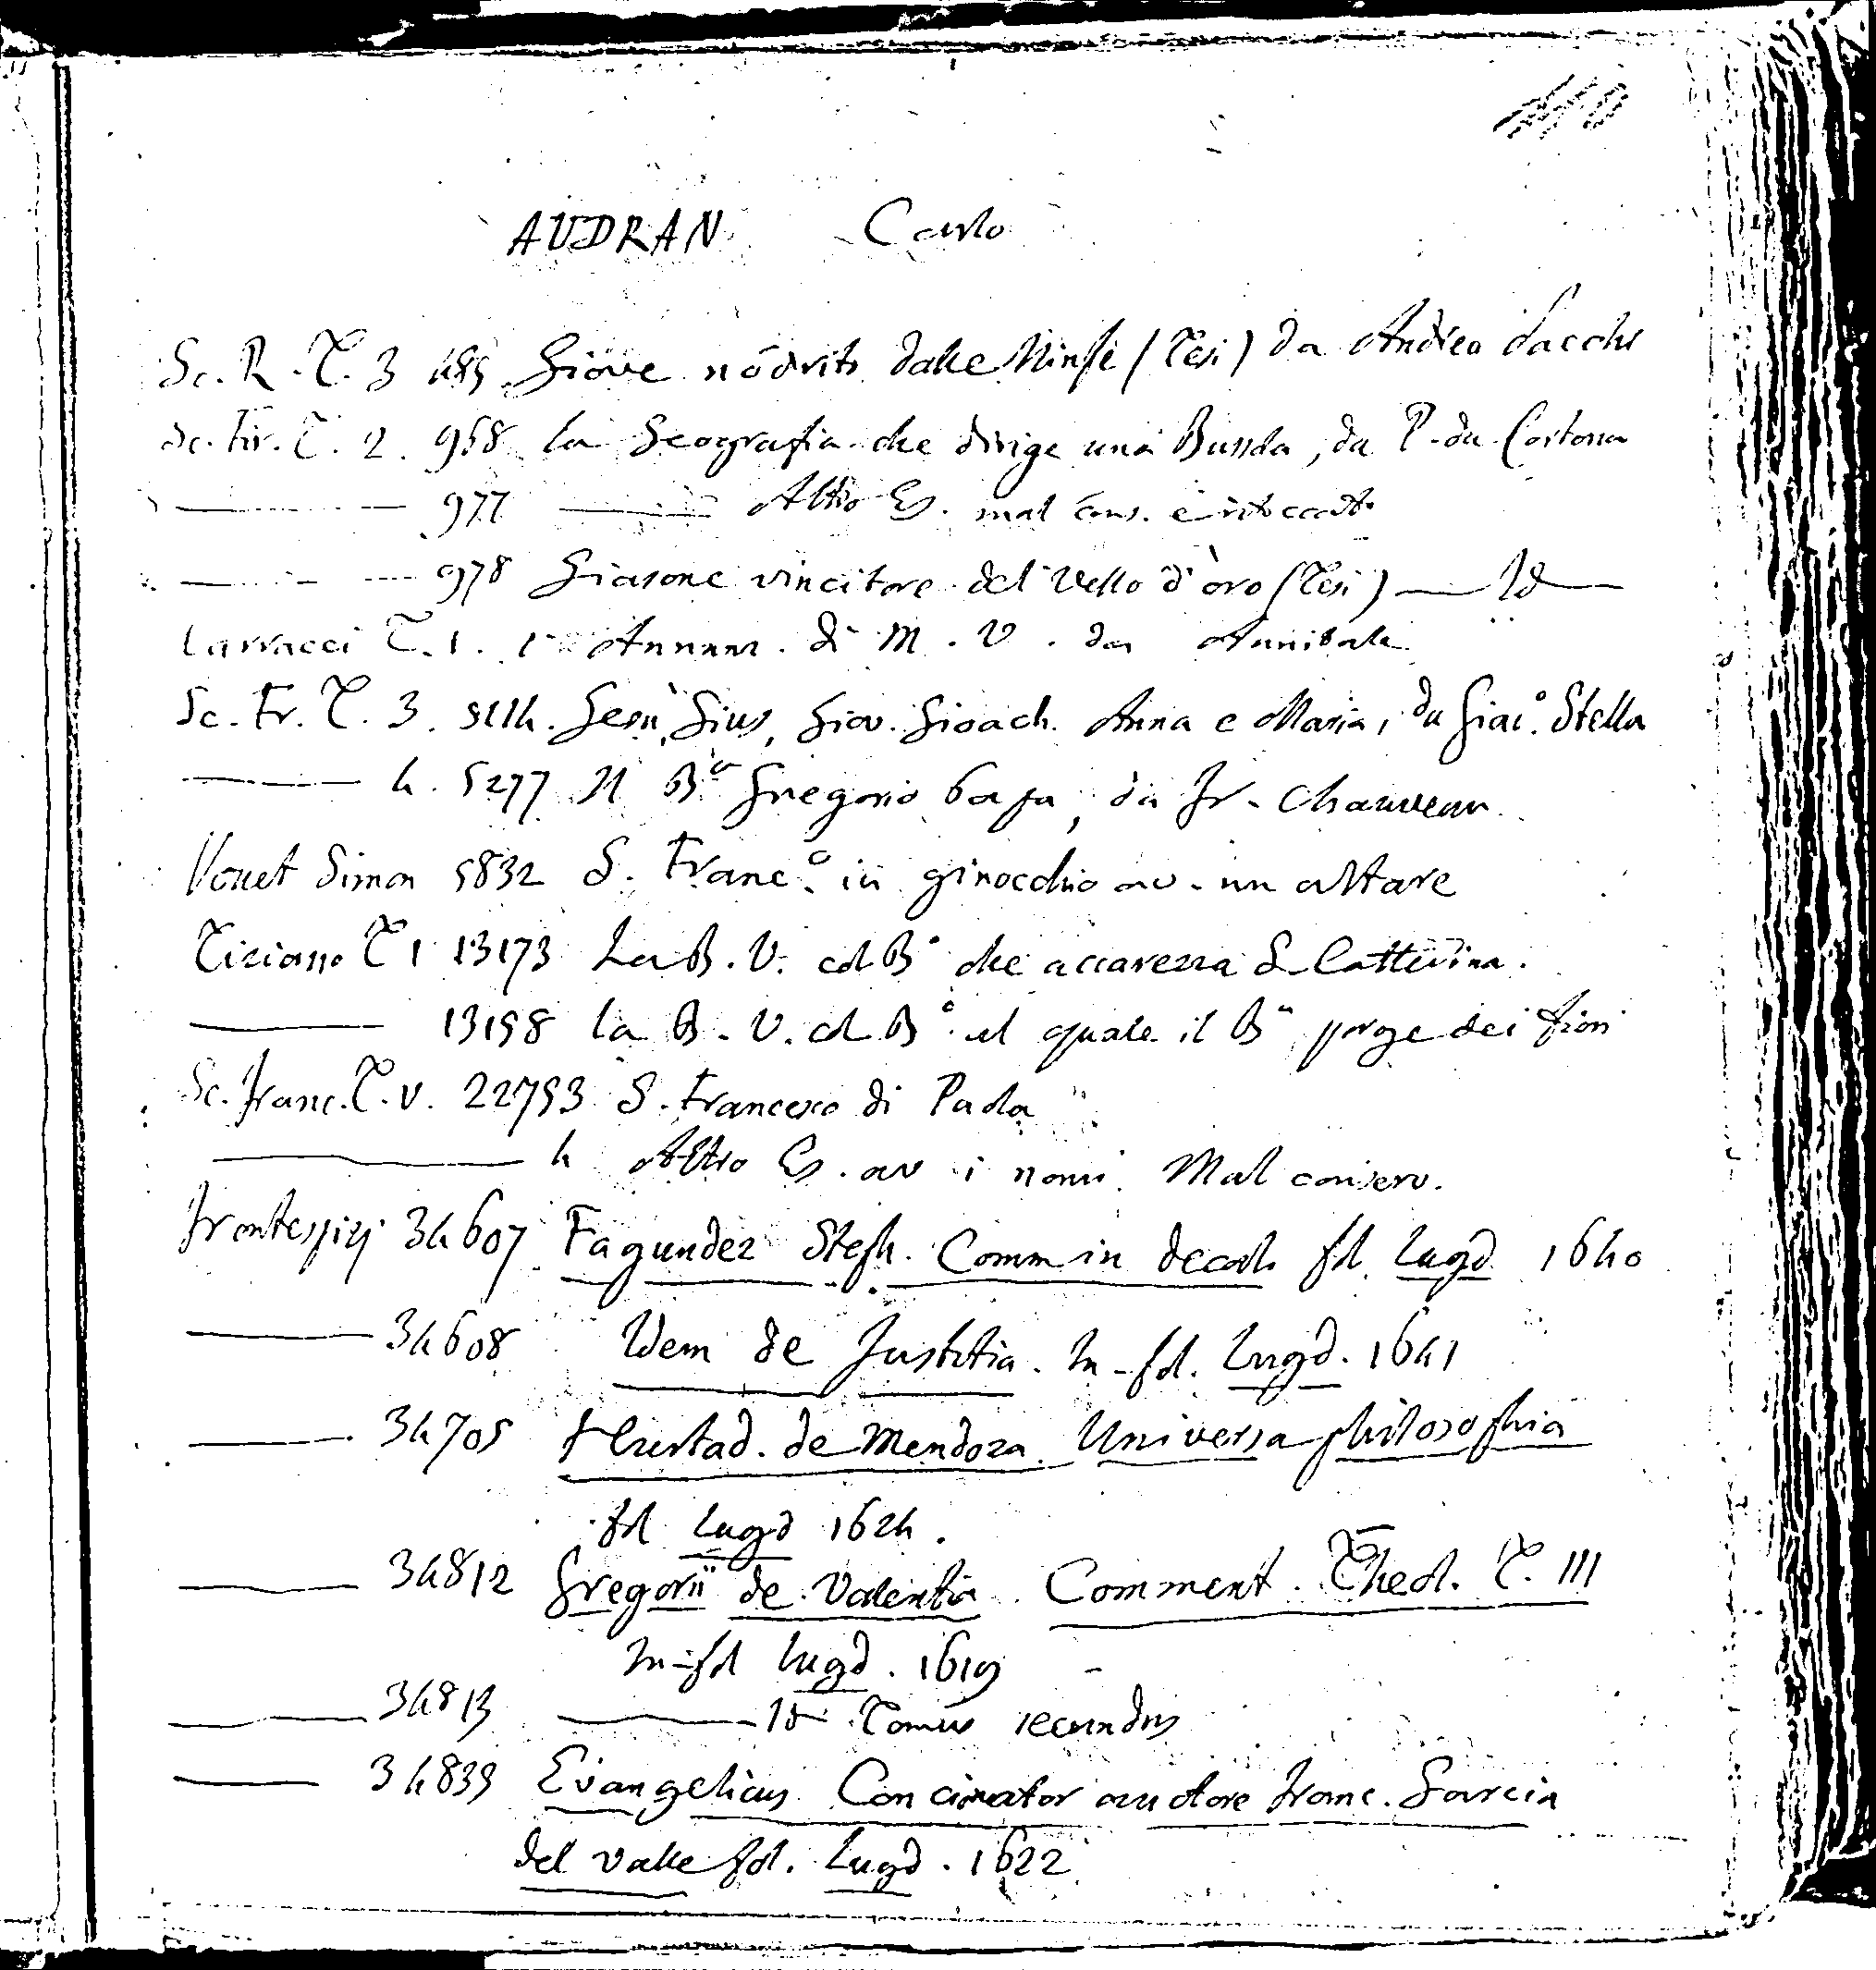 AUDRAN Carlo
Sc. R. T. 3 485 Giove nodrito dalle Ninfe (Tesi) da Andrea Sacchi
Sc. Fir. T. 2. 958 La Geografia che dirige una Bussola, da P. da Cortona
977 Altro Es. mal cons. e ritoccato
978 Giasone vincitore del Vello d'oro (Tesi) — Id —
Carracci T. 1. 1 Annunz. di M. V. da Annibale
Sc. Fr. T. 3. 5114. Gesù, Gius, Giov. Gioach. Anna e Maria, da Giac.º Stella
4. 5277 Il Bº Gregorio papa, da Fr. Chauveau
Vouet Simon 5832 S. Franc.º in ginocchio av. un altare
Tiziano T 1 13173 La B. V. col Bº che accarezza S. Catterina.
13198 la B. V. col Bº al quale il Bº porge dei fiori
Sc. Franc. T. V. 22753 S. Francesco di Paola
4 Altro Es. av i nomi. Mal conserv.
Frontespizj 34607 Fagundez Steph. Comm in decal. fol. Lugd 1640
34608 Idem de Justitia. In-fol. Lugd. 1641
34705 Hurtad. de Mendoza. Universa philosophia
fol Lugd 1624.
34812 Gregorii de Valentia. Comment. Theol. T. III
In-fol Lugd. 1619
34813 Id Tomus secundus
34839 Evangelicus Concionator auctore Franc. Garcia
del Valle fol. Lugd. 1622